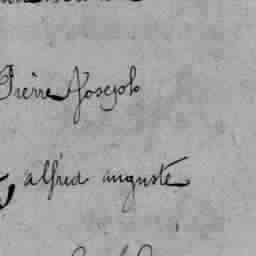 Pierre Joseph
alfred auguste